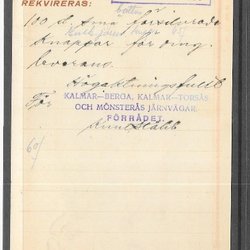 REKVIRERAS:
100 st. små försilvrade
knappar för omg.
leverans.
Högaktningsfullt
För
KALMAR—BERGA, KALMAR—TORSÅS
OCH MÖNSTERÅS JÄRNVÄGAR.
FÖRRÅDET.
60/